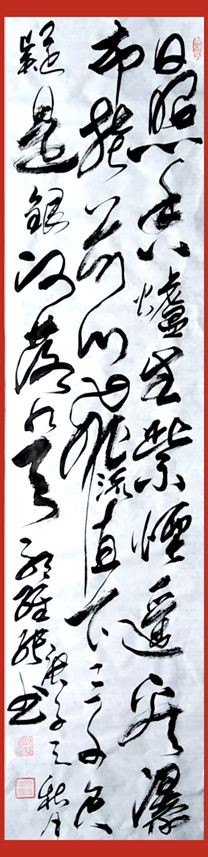 日照香爐生紫煙遥看瀑
布挂前川飛流直下三千尺
疑是銀河落九天
庚子之秋月
书